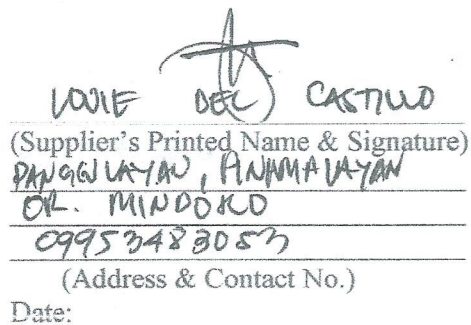 LOUIE DEL CASTILLO
(Supplier's Printed Name & Signature)
PANGGULAYAN, PINAMALAYAN
OR. MINDORO
09953483053
(Address & Contact No.)
Date: